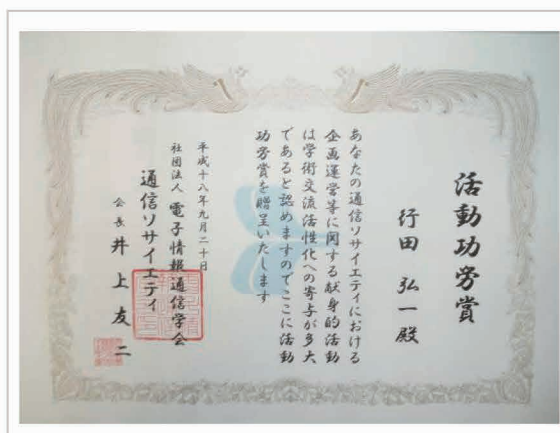 活動功労賞
行田 弘一殿
あなたの通信ソサイエティにおける
企画運営等に関する献身的活動
は学術交流活性化への寄与が多大
であると認めますのでここに活動
功労賞を贈呈いたします
平成十八年九月二十日
社団法人 電子情報通信学会
通信ソサイエティ
会長 井上友二